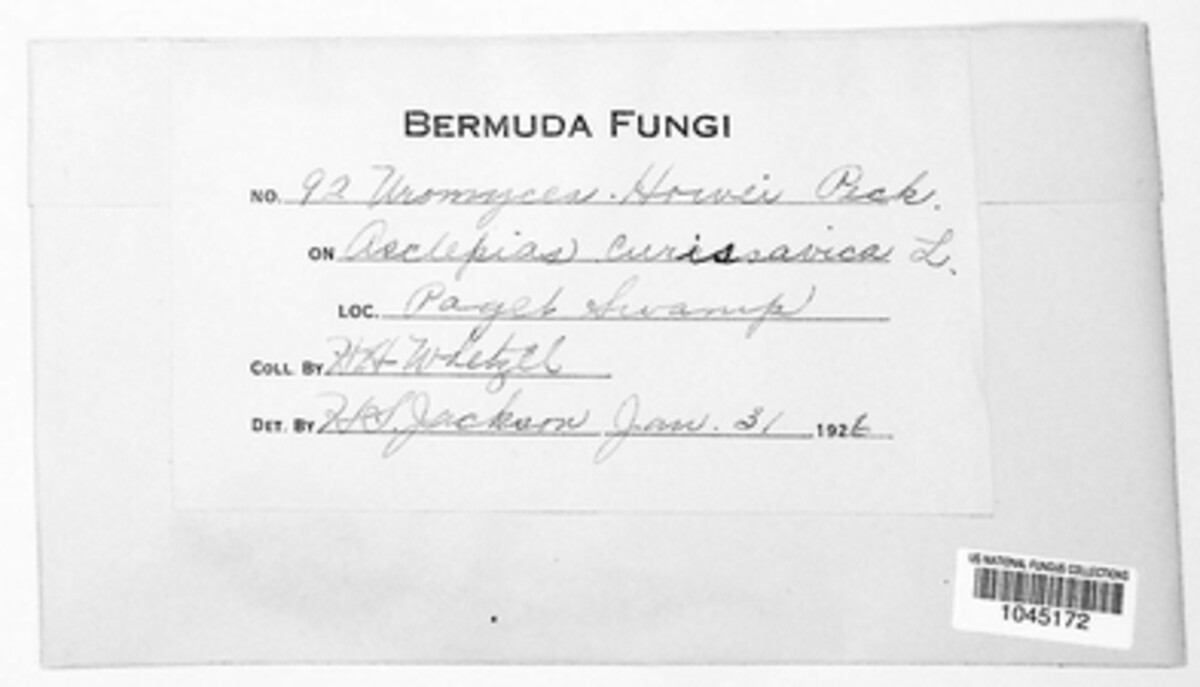 BERMUDA FUNGI
NO. 92 Uromyces Howei Peck.
ON Asclepias curissavica L.
LOC. Paget Swamp
COLL. BY HH Whetzel
DET. BY H.S. Jackson Jan. 31 1926
US NATIONAL FUNGUS COLLECTIONS
1045172